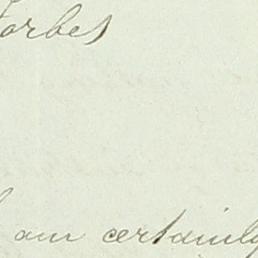 Forbes
I am certainly